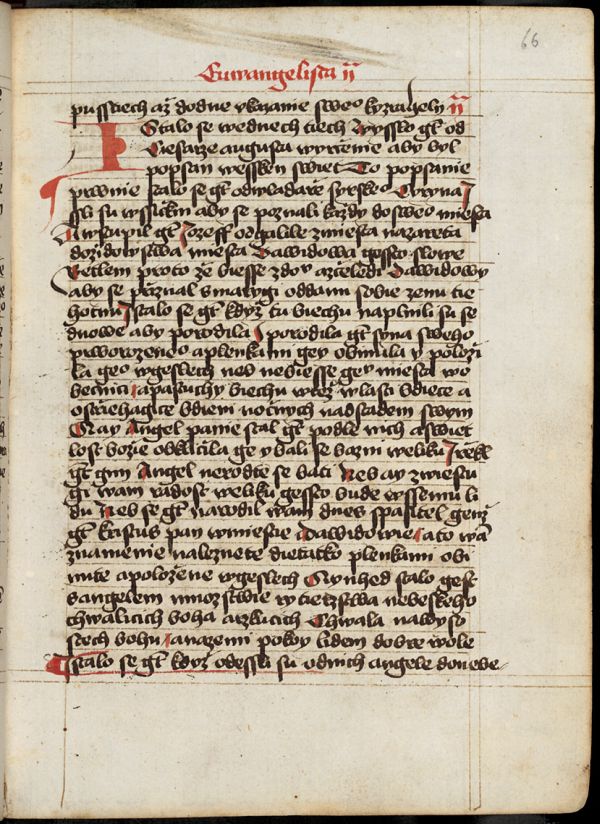 66
Ewangelista ii
pusstiech až dodne ukazanie sweo kyzrahely ii
I Stalo se wednech tiech wyssło gt od
Ciesarze augusta wyrcenie aby byl
popsan wessken swiet To popsanie
prwnie stalo se gt odwladarze syrskeo Cyryna I
ssli su wssickni aby se poznali každy do sweo miesta
I wstupil gt Jozeff od galilee zmiesta nazareta
do židowstwa miesta Dawidowa gessto slowe
Betlem proto že biesse zdomu a zčeledi Dawidowy
aby se přiznal s marygi oddanu sobie ženu tie
hotnu I stalo se gt kdyz tu biechu naplnili su se
dnowe aby porodila I porodila gt syna sweho
prworozeneo a plenkami gey obinula y položi
la geo wgeslech neb nebiesse gey miesta wo
becnici a pastuchy biechu wtez wlasti bdiece a
ostriehagice bdieni nočnych nad stadem swym
A ay Angel panie stal gt podle nich a swiet
lost božie obklicila ge y bali se bazni weliku I rekl
gt gim Angel nerodte se bati Neb ay zwiestu
gi wam radost weliku gessto bude wssemu li
du Neb se gt narodil wam dnes spasitel genž
gt kristus pan wmiestie Dawidowie a to wam
znamenie naleznete dietatko plenkami obi
nute a položene wgeslech A ynhed stalo gest
s angelem množstwie rytierstwa nebeskeho
chwalicich boha a rzkucich Chwala na wyso
stech bohu a na zemi pokoy lidem dobre wole
I stalo se gt kdyz odessli su od nich angele do nebe